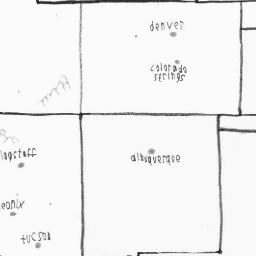 denver
colorado
springs
lagstaff
albuquerque
oenix
tucson